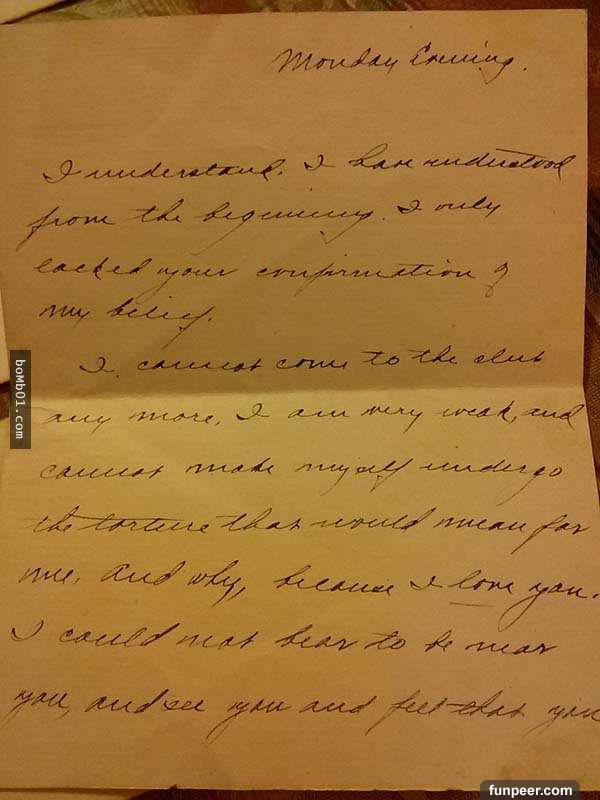 Monday Evening.
I understand. I have understood
from the beginning. I only
lacked your confirmation of
my belief.
I cannot come to the club
any more. I am very weak, and
cannot make myself undergo
the torture that would mean for
me. And why, because I love you.
I could not bear to be near
you, and see you and feel that you
bomb01.com
funpeer.com